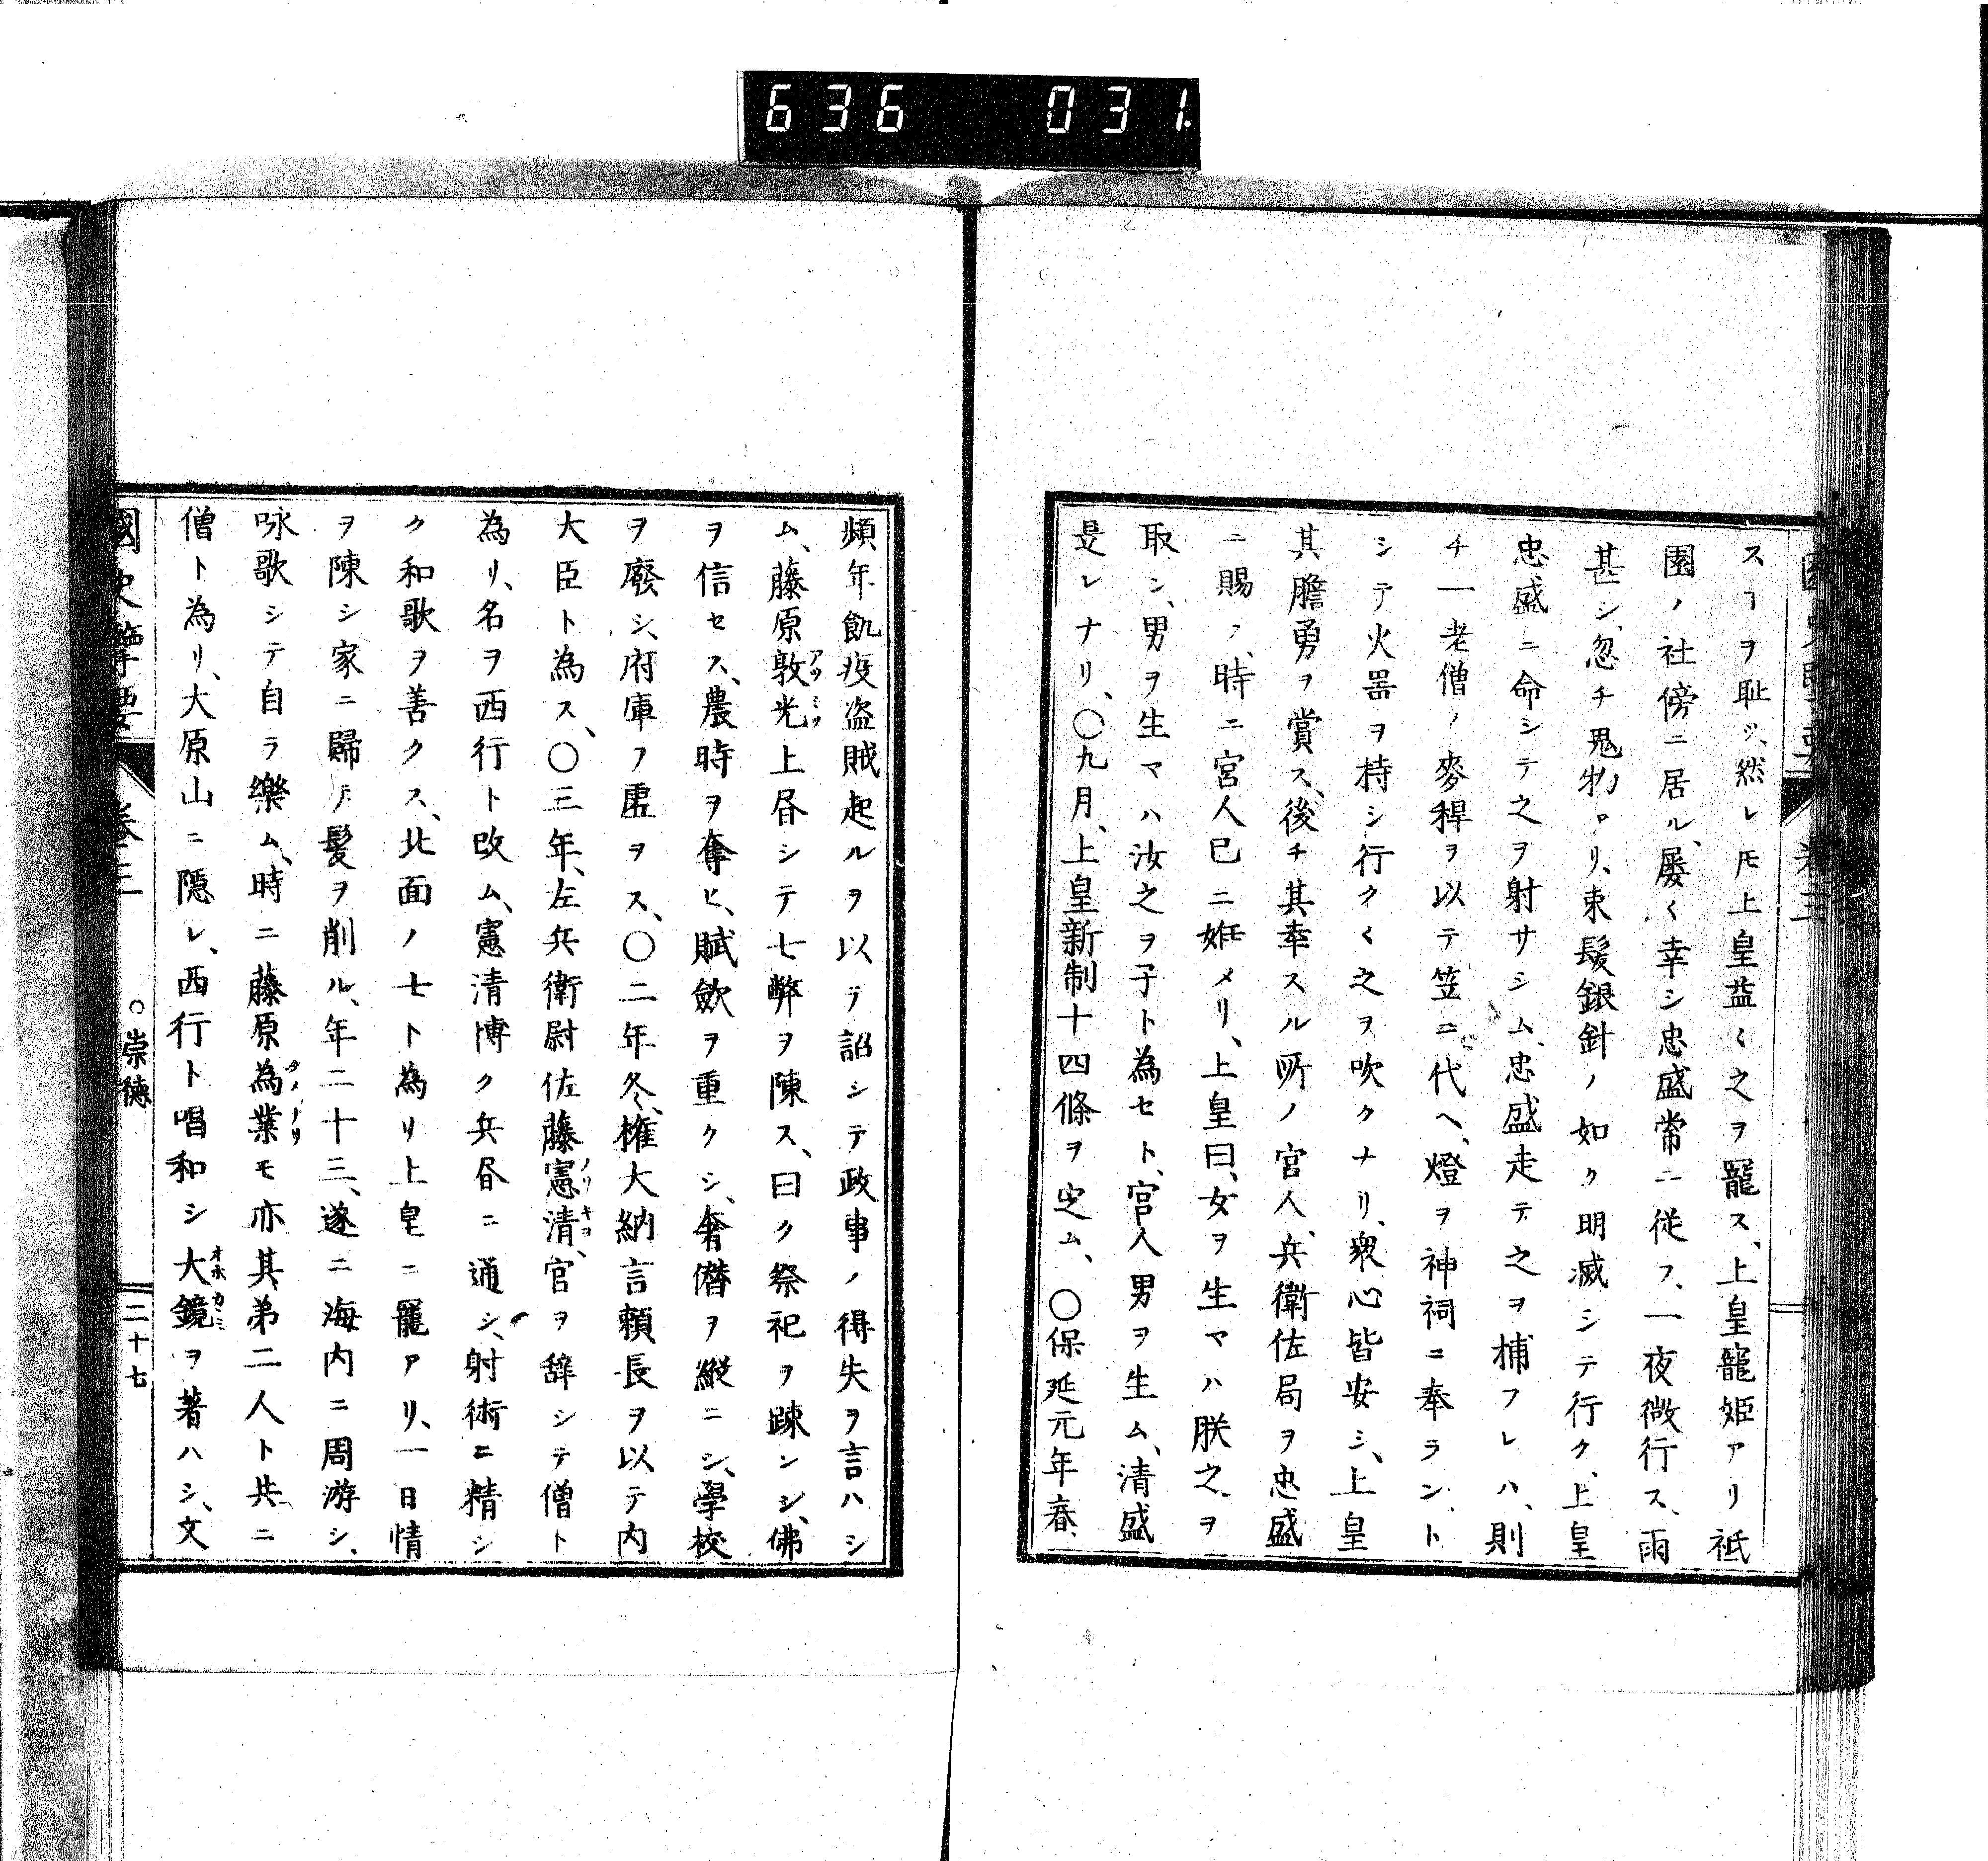 636 031
スヿヲ耻ツ、然レ𪜈上皇益く之ヲ寵ス、上皇寵姫アリ祇
園ノ社傍ニ居ル、屡く幸シ忠盛常ニ従フ、一夜微行ス、雨
甚シ、忽チ鬼物アリ、束髮銀針ノ如ク明滅シテ行ク、上皇
忠盛ニ命シテ之ヲ射サシム、忠盛走テ之ヲ捕フレハ、則
チ一老僧ノ麥稈ヲ以テ笠ニ代ヘ、燈ヲ神祠ニ奉ラント
シテ火器ヲ持シ行クく之ヲ吹クナリ、衆心皆安シ、上皇
其膽勇ヲ賞ス、後チ其幸スル所ノ宮人、兵衛佐局ヲ忠盛
ニ賜フ、時ニ宮人已ニ姙メリ、上皇曰、女ヲ生マハ朕之ヲ
取ン、男ヲ生マハ汝之ヲ子ト為セト、宮人男ヲ生ム、清盛
是レナリ、〇九月、上皇新制十四條ヲ定ム、〇保延元年春、
頻年飢疫盗賊起ルヲ以テ詔シテ政事ノ得失ヲ言ハシ
ム、藤原敦光アツミツ上昏シテ七弊ヲ陳ス、曰ク祭祀ヲ踈ンシ、佛
ヲ信セス、農時ヲ奪ヒ、賦斂ヲ重クシ、奢僭ヲ縱ニシ、學校
ヲ廢シ、府庫フ虚ヲス、〇二年冬、権大納言頼長ヲ以テ内
大臣ト為ス、〇三年、左兵衛尉佐藤憲清ノリキヨ、官ヲ辞シテ僧ト
為リ、名ヲ西行ト改ム、憲清博ク兵昏ニ通シ、射術ニ精シ
ク和歌ヲ善クス、北面ノ七ト為リ上皇ニ寵アリ、一日情
ヲ陳シ家ニ歸テ髪ヲ削ル、年二十三、遂ニ海内ニ周游シ、
咏歌シテ自ラ樂ム、時ニ藤原為業タメナリモ亦其弟二人ト共ニ
僧ト為リ、大原山ニ隠レ、西行ト唱和シ大鏡オホカミヲ著ハシ、文
國史擥要 卷三 〇崇徳 二十七